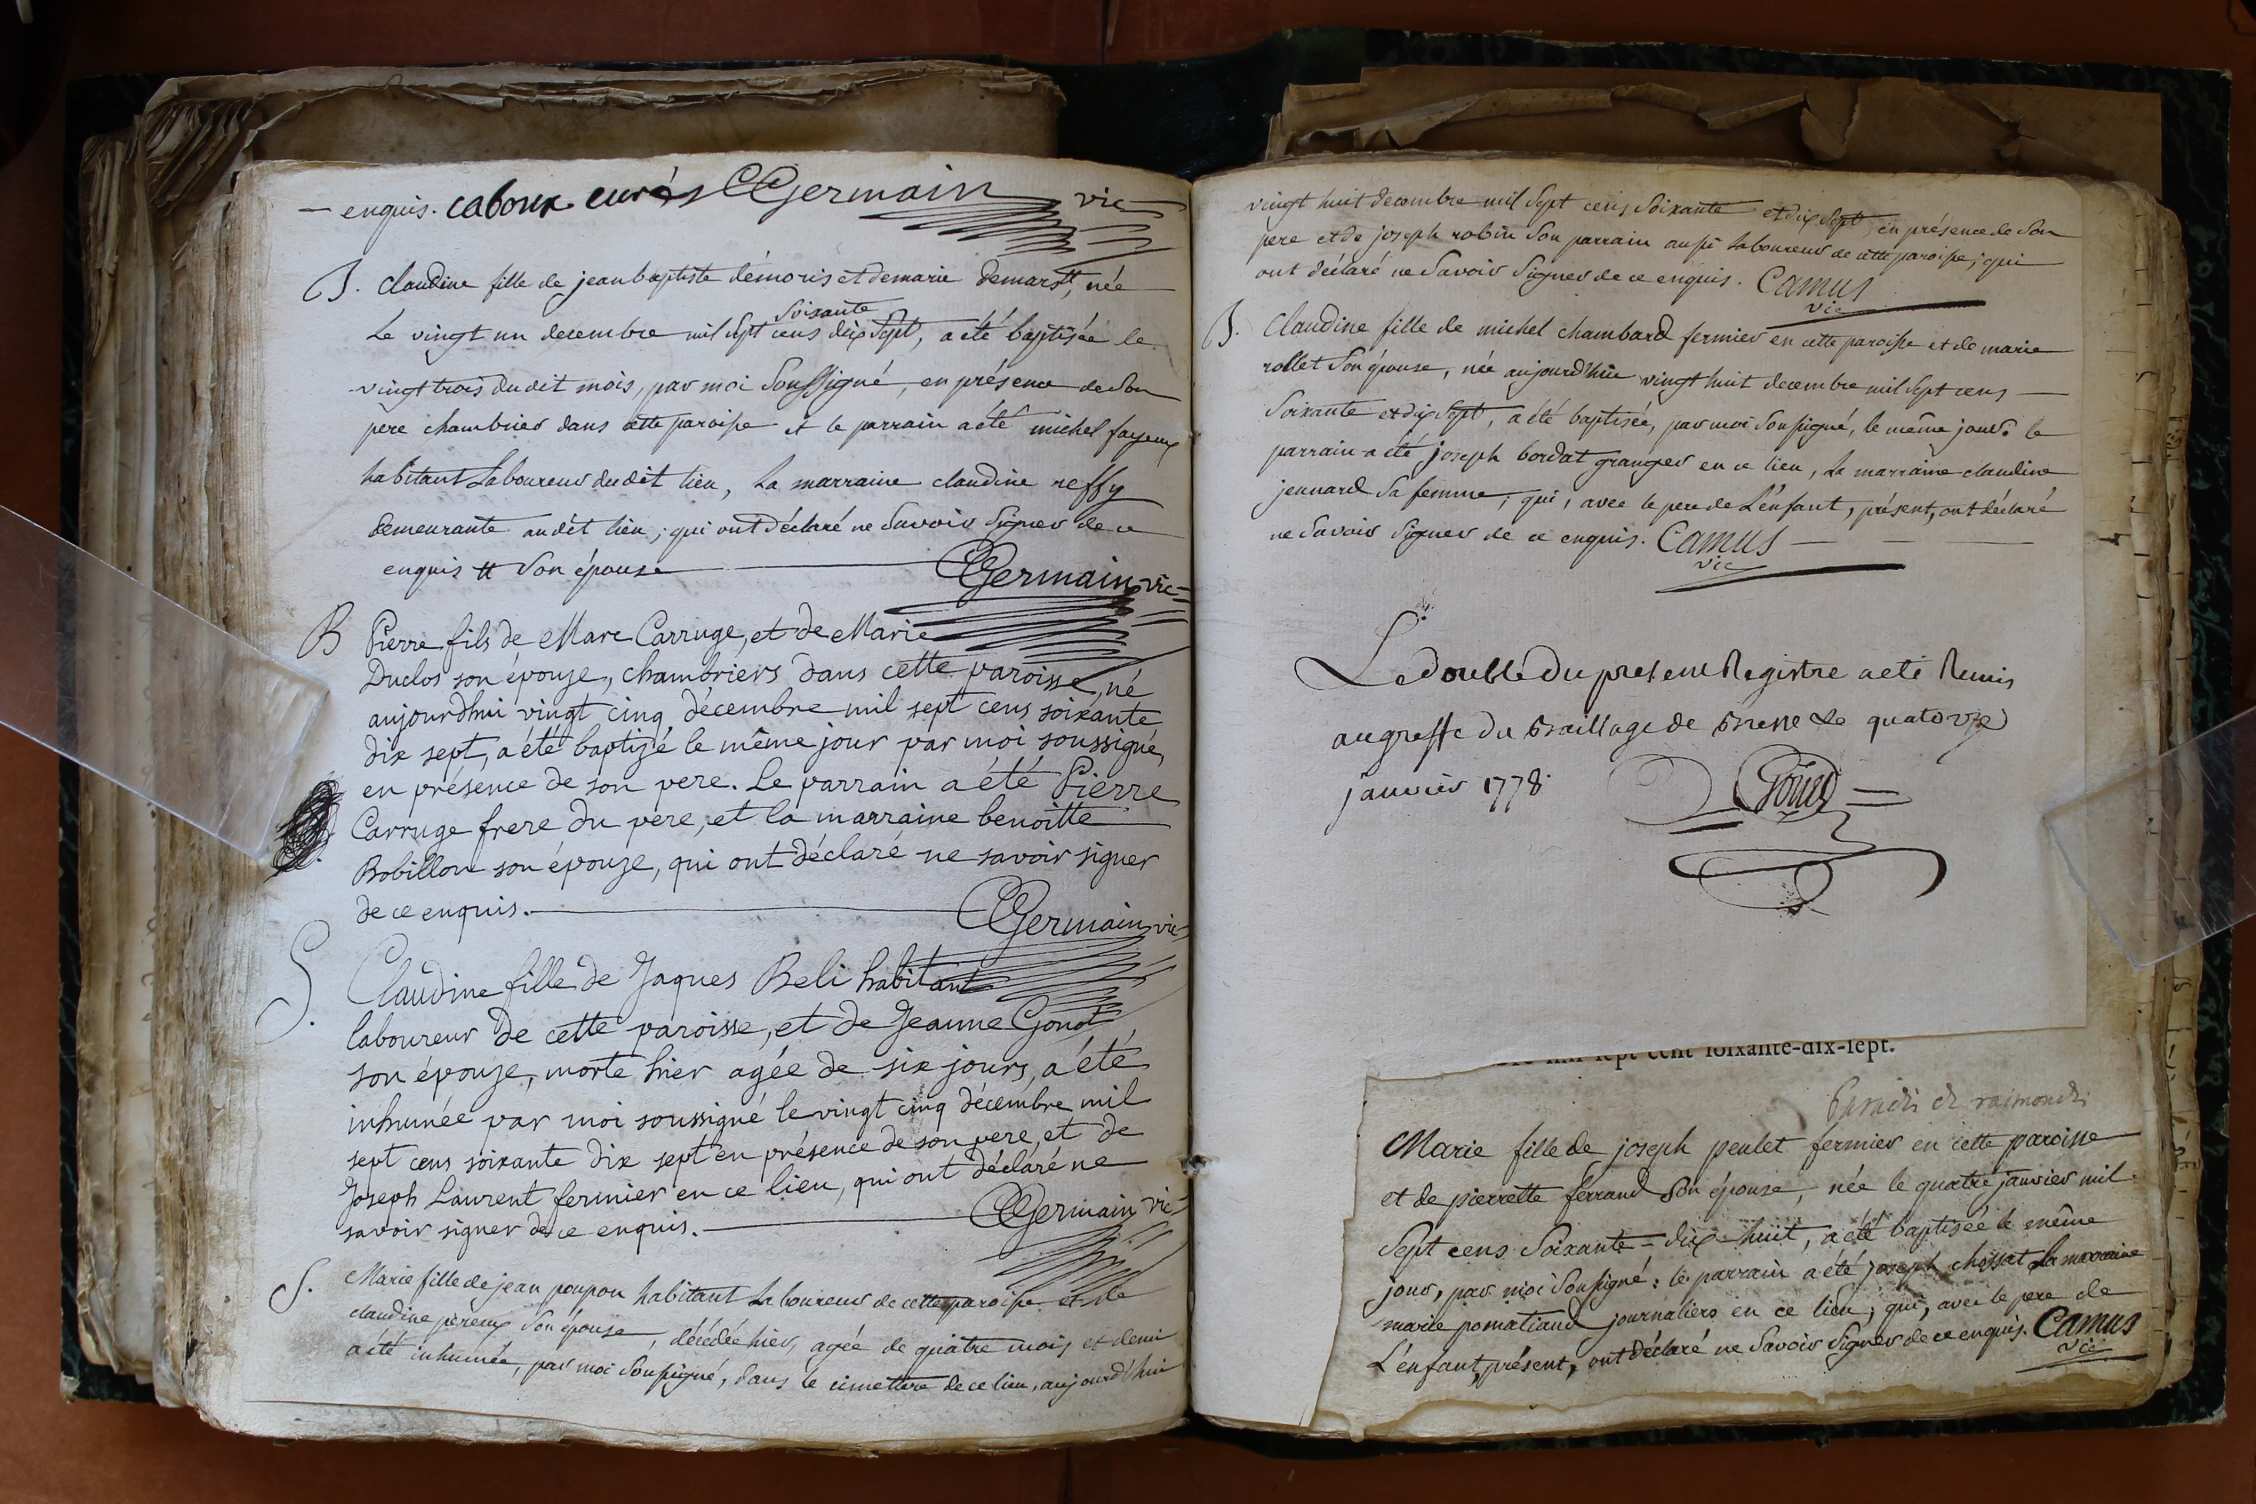 enquis. caboux curé CGermain vic
B. Claudine fille de jean baptiste démoris et de marie demars tt, née
Le vingt un decembre mil sept cens soixante dix sept, a été baptisée le
vingt trois du dit mois, par moi Soussigné, en présence de Son
pere chambrier dans cette paroisse et le parrain a été michel fayeux
habitant Laboureur du dit lieu, La marraine claudine reffy
demeurante au dit lieu; qui ont déclaré ne Savoir Signer de ce
enquis tt Son épouse CGermain vic
B Pierre fils de Marc Carruge, et de Marie
Duclos son épouze, chambriers dans cette paroisse, né
aujourdhui vingt cinq décembre mil sept cens soixante
dix sept, a été baptizé le même jour par moi soussigné,
en présence de son pere. Le parrain a été Pierre
Carruge frere du pere, et la marraine benoitte
Bobillon son épouze, qui ont déclaré ne savoir signer
de ce enquis. CGermain vic
S. Claudine fille de Jaques Beli habitant
laboureur de cette paroisse, et de Jeanne Gonot
son épouze, morte hier agée de six jours, a été
inhumée par moi soussigné le vingt cinq décembre mil
sept cens soixante dix sept en présence de son pere, et de
Joseph Laurent fermier en ce lieu, qui ont déclaré ne
savoir signer de ce enquis. CGermain vic
S. Marie fille de jean poupon habitant Laboureur de cette paroisse et de
claudine pereux Son épouse, décédée hier, agée de quatre mois et demi
a été inhumée, par moi Soussigné, dans le cimettiere de ce lieu, aujourd'hui
vingt huit decembre mil Sept cens Soixante et dix Sept en présence de Son
pere et de joseph robin Son parrain aussi Laboureur de cette paroisse; qui
ont déclaré ne Savoir Signer de ce enquis. Camus
vic
B. Claudine fille de michel chambard fermier en cette paroisse et de marie
rollet Son épouse, née aujourd'hui vingt huit decembre mil Sept cens
Soixante et dix Sept, a été baptisée, par moi Soussigné, le même jour. le
parrain a été joseph bordat granger en ce lieu, La marraine claudine
jennard Sa femme; qui, avec le pere de L'enfant, présent, ont déclaré
ne Savoir Signer de ce enquis. Camus
vic
Le double du present Registre a eté Remis
au greffe du Baillage de Bresse Le quatorze
janvier 1778.
mil sept cent soixante-dix-sept.
Marie fille de joseph peulet fermier en cette paroisse
et de pierrette ferrand Son épouse, née le quatre janvier mil
Sept cens Soixante-dix-huit, a été baptisée le même
jour, par moi Soussigné: le parrain a été joseph chossat La marraine
marie pomatiaud journaliers en ce lieu; qui, avec le pere de
L'enfant, présent, ont déclaré ne Savoir Signer de ce enquis. Camus
vic